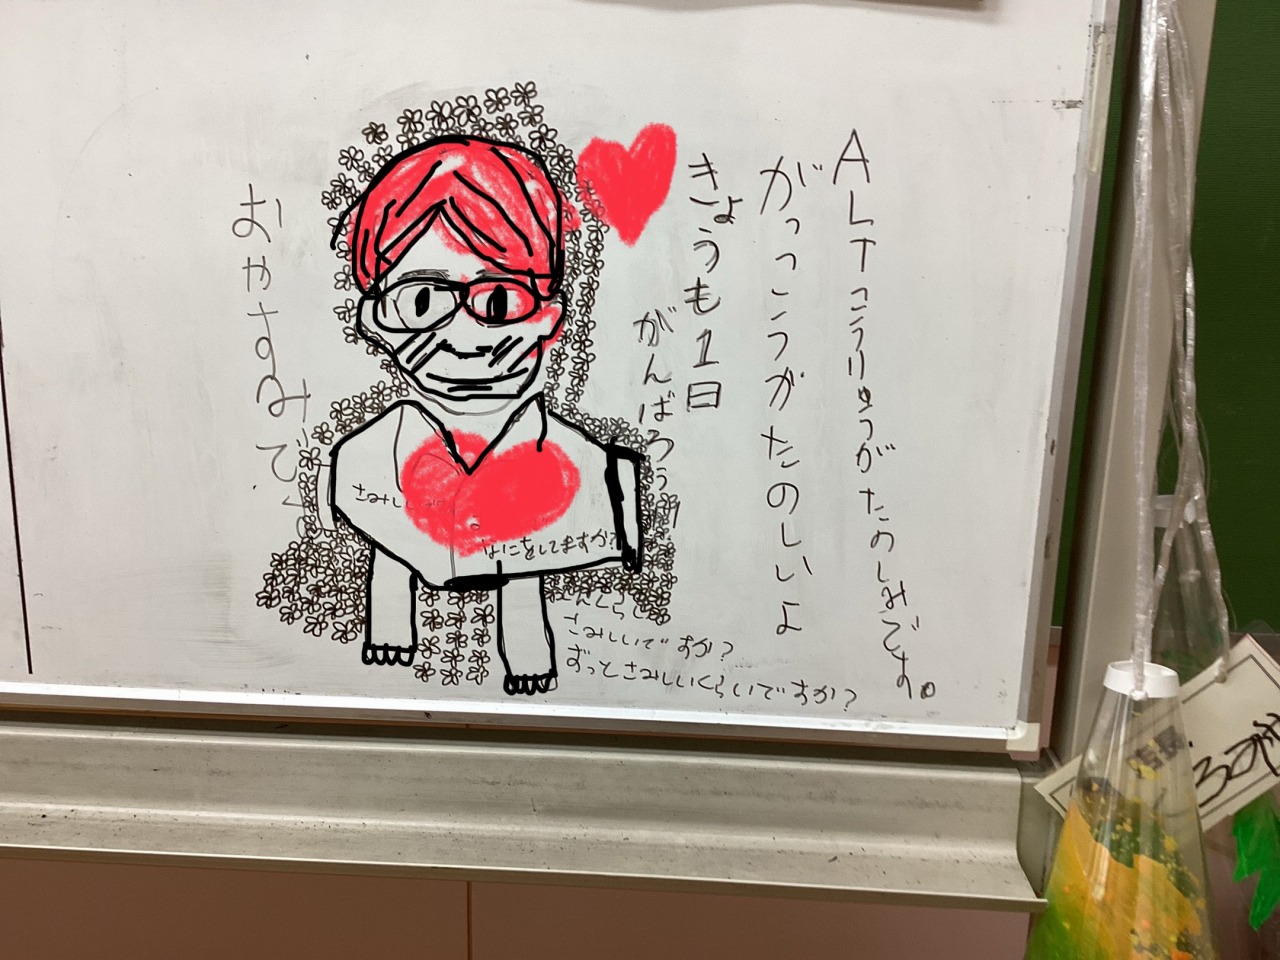 ALTこうりゅうがたのしみです。
がっこうがたのしいよ
きょうも1日
がんばろう
おやすみで
さみし
なにをしてますか?
んくらい
さみしいですか?
ずっとさみしいくらいですか?